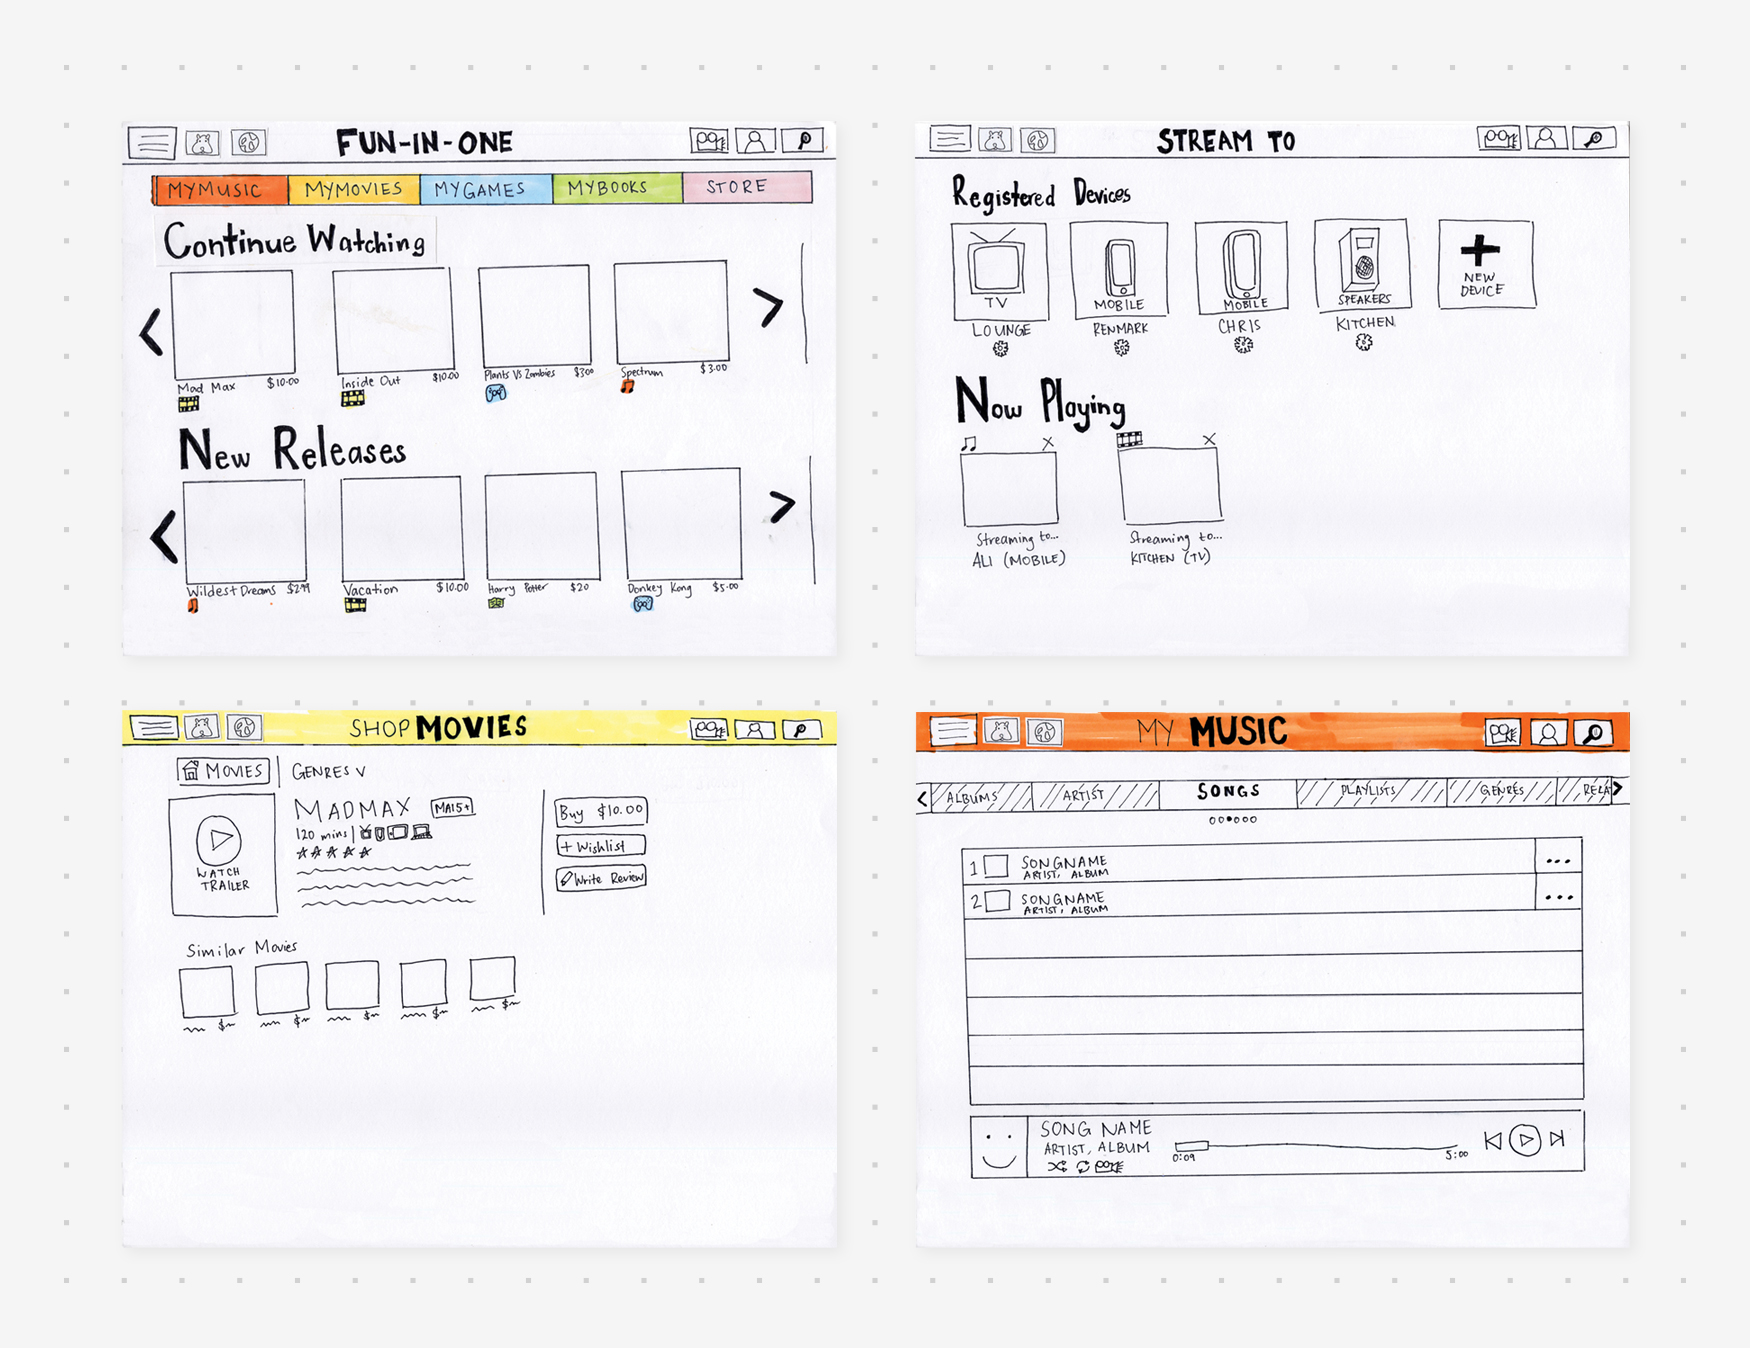 FUN-IN-ONE
MYMUSIC MYMOVIES MYGAMES MYBOOKS STORE
Continue Watching
Mad Max $10.00 Inside Out $10.00 Plants Vs Zombies $3.00 Spectrum $3.00
New Releases
Wildest Dreams $2.99 Vacation $10.00 Harry Potter $20 Donkey Kong $5.00
STREAM TO
Registered Devices
TV MOBILE MOBILE SPEAKERS NEW DEVICE
LOUNGE RENMARK CHRIS KITCHEN
Now Playing
Streaming to... Streaming to...
ALI (MOBILE) KITCHEN (TV)
SHOP MOVIES
MOVIES GENRES V
MADMAX MA15+
120 mins |
WATCH
TRAILER
Buy $10.00
+ Wishlist
Write Review
Similar Movies
$ $ $ $ $
MY MUSIC
< ALBUMS ARTIST SONGS PLAYLISTS GENRES RELA >
1 SONGNAME ...
ARTIST, ALBUM
2 SONGNAME ...
ARTIST, ALBUM
SONG NAME
ARTIST, ALBUM
0:09 5:00